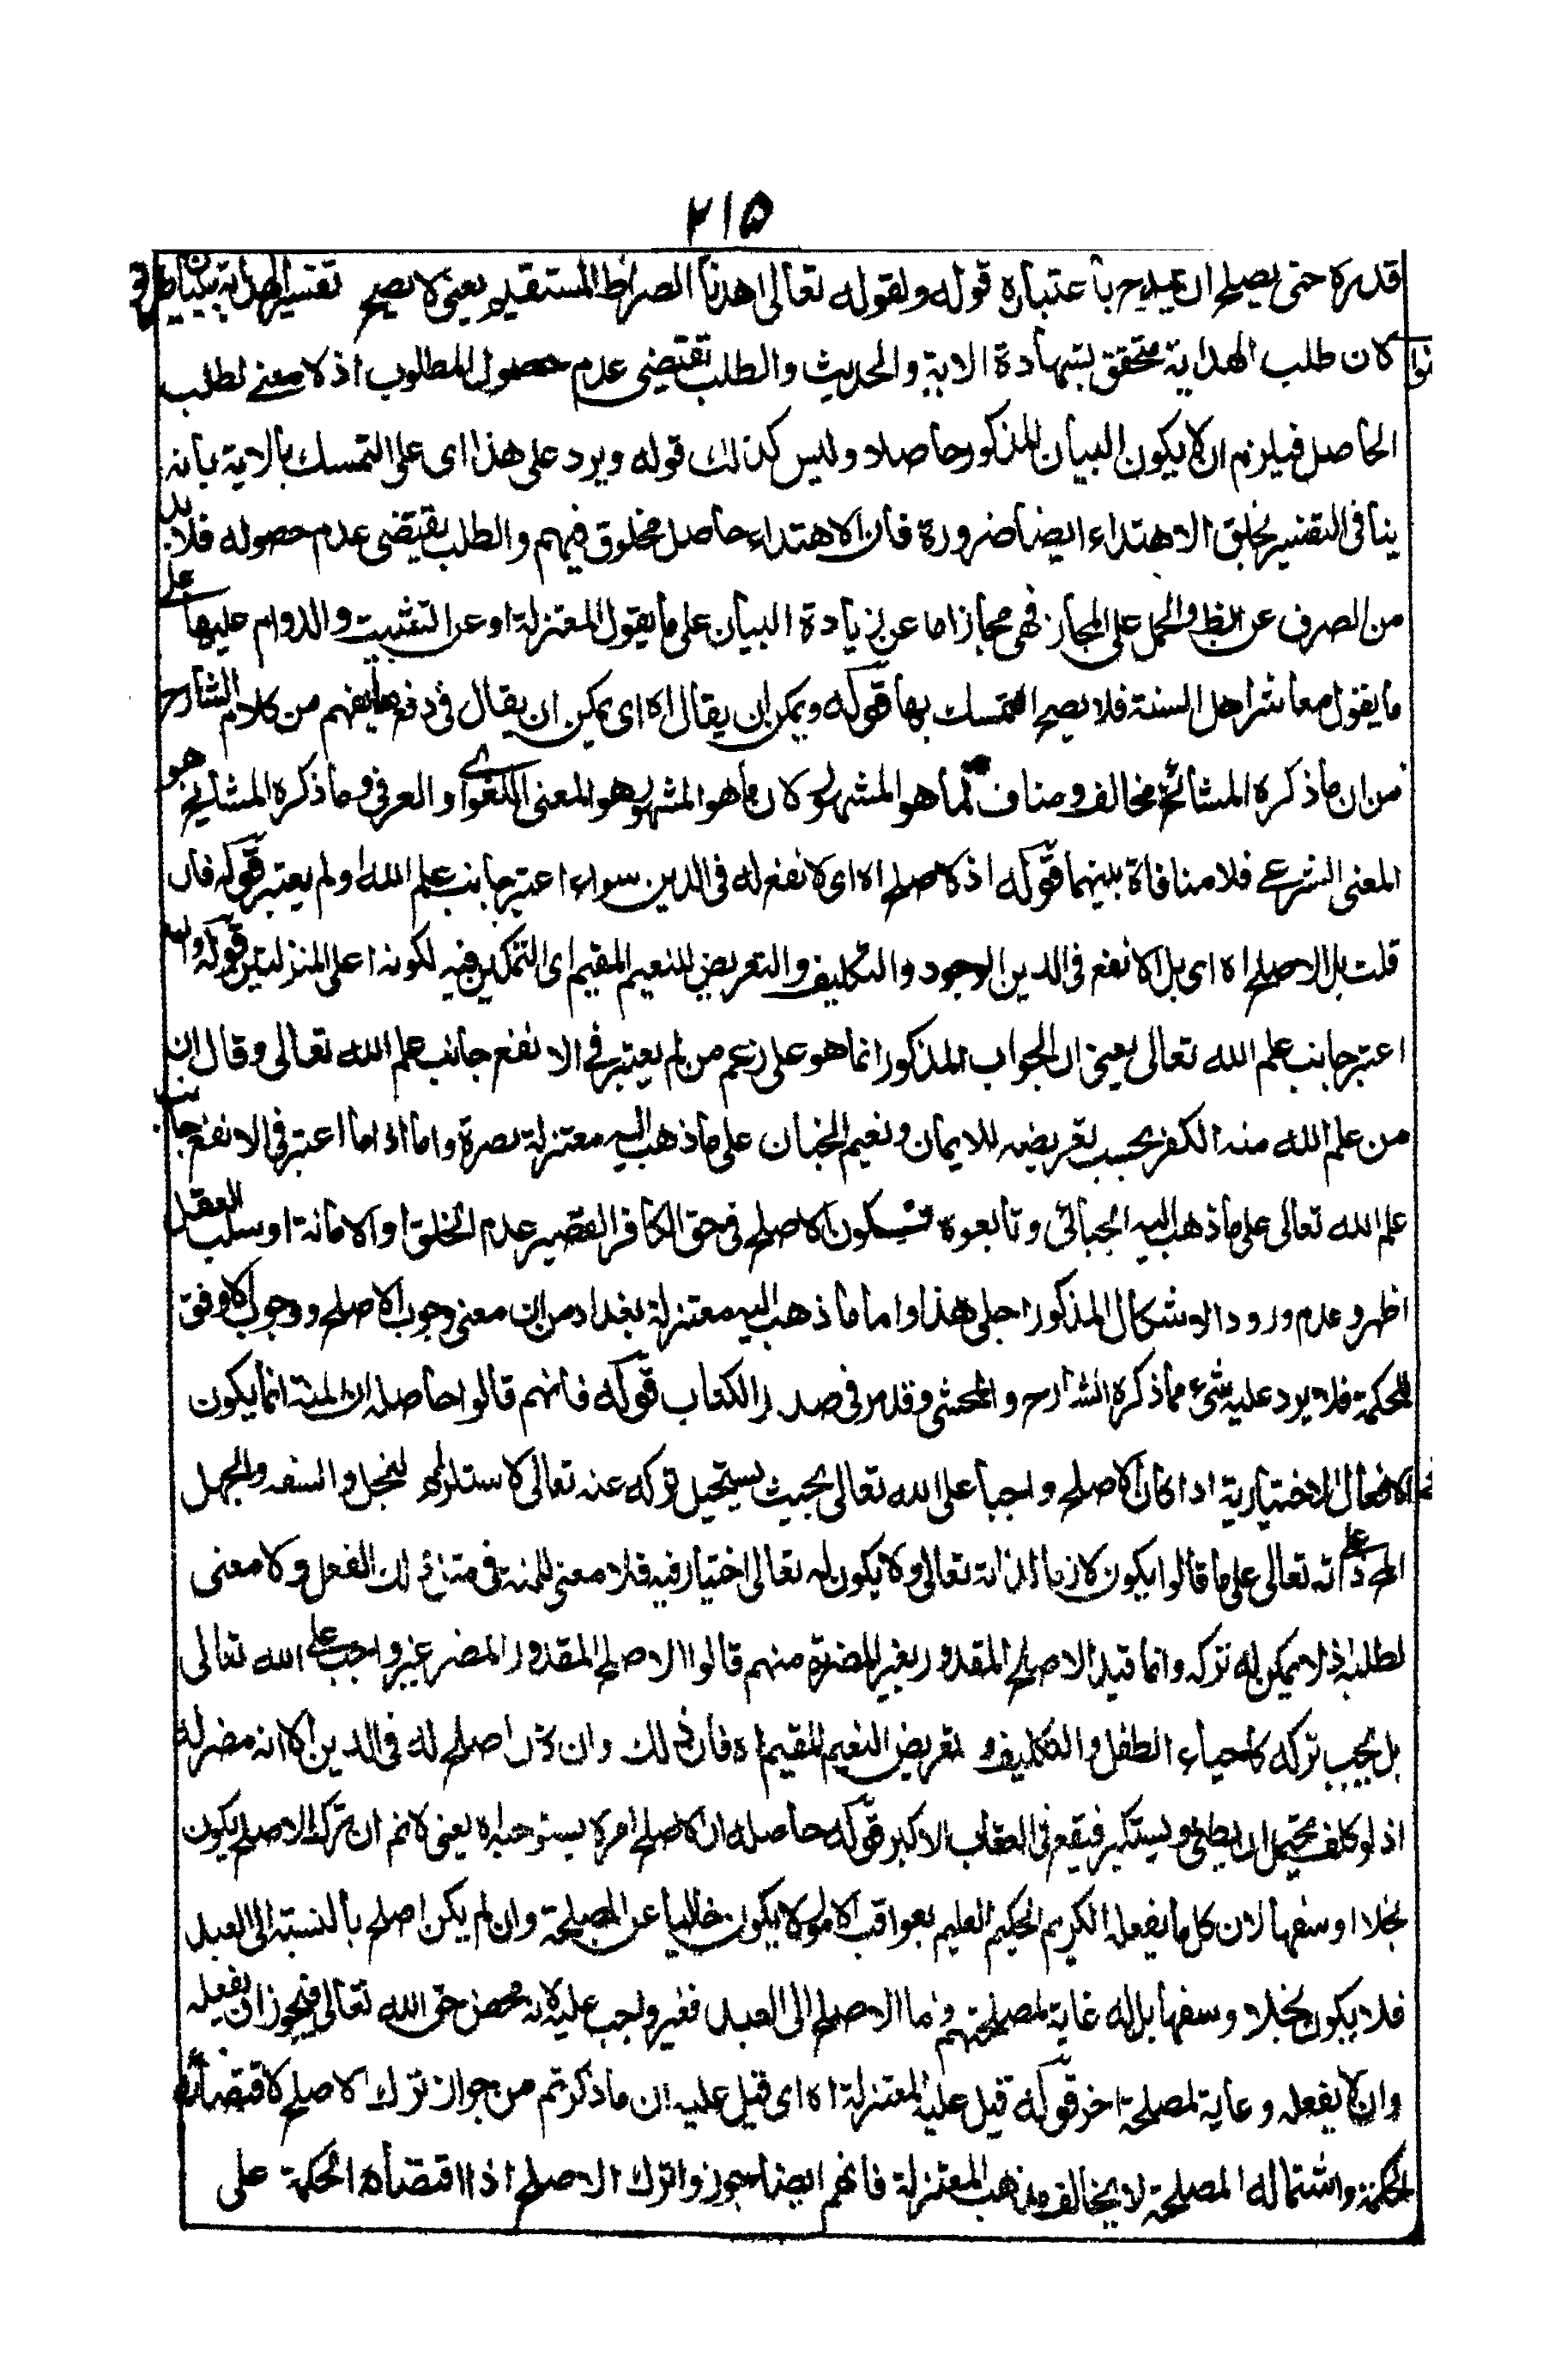 ٢١٥
قدره حتى يصلح ان يمدح باعتباره قوله ولقوله تعالى اهدنا الصراط المستقيم يعنى لا يصح تفسير الهداية ببيان طريق
كان طلب الهداية متحقق بشهادة الاية والحديث والطلب تقتضى عدم حصول المطلوب اذ لا معنے لطلب
الحاصل فيلزم ان لا يكون البيان المذكور حاصلا وليس كذلك قوله ويرد على هذا اى على التمسك بالاية بانه
ينافى التفسير بخلق الاهتداء ايضا ضرورة فان الاهتداء حاصل مخلوق فيهم والطلب يقتضى عدم حصوله فلا بد
من الصرف عن الظ والحمل على المجاز فهى مجاز اما عن زيادة البيان على ما يقول المعتزلة او عن التثبيت والدوام عليها على
ما يقول معاشر اهل السنة فلا يصح التمسك بها قوله ويمكن ان يقال اه اى يمكن ان يقال فى دفع ما يفهم من كلام الشارح
من ان ما ذكره المشائخ مخالف ومناف لما هو المشهور لان ما هو المشهور هو المعنى اللغوى او العرفى وما ذكره المشايخ هو
المعنى الشرعے فلا منافاة بينهما قوله اذ لا صلح اه اى لا نفع له فى الدين سواء اعتبر جانب علم الله او لم يعتبر قوله فان
قلت بل الاصلح اه اى بل الانفع فى الدين الوجود والتكليف والتعريض للنعيم المقيم اى التمكين فيه لكونه اعلى المنزلتين قوله وان
اعتبر جانب علم الله تعالى يعنى ان الجواب المذكور انما هو على زعم من لم يعتبر فى الانفع جانب علم الله تعالى وقال ان
من علم الله منه الكفر يجب تعريضه للايمان ونعيم الجنان على ما ذهب اليه معتزلة بصرة واما اذا ما اعتبر فى الانفع جانب
علم الله تعالى على ما ذهب اليه الجبائى وتابعوه فيكون الاصلح فى حق الكافر الفقير عدم الخلق او الاماتة او سلب العقل
اظهر وعدم ورود الاشكال المذكور اجلى هذا واما ما ذهب اليه معتزلة بغداد من ان معنى وجوب الاصلح ووجوب الاوفق
للحكمة فلا يرد عليه شئ مما ذكره الشارح والمحشى وقد مر فى صدر الكتاب قوله فانهم قالوا حاصله ان المنة انما يكون
فى الافعال الاختيارية اذا كان الاصلح واجبا على الله تعالى بحيث يستحيل تركه عنه تعالى لاستلزام البخل والسفه والجهل
على ذاته تعالى على ما قالوا يكون لازما لذاته تعالى ولا يكون له تعالى اختيار فيه فلا معنى للمنة فى ذلك الفعل ولا معنى
لطلبه اذ لا يمكن له تركه وانما قيد الاصلح المقدور بغير المضرة منهم قالوا الاصلح المقدور المضر غير واجب على الله تعالى
بل يجب تركه كاحياء الطفل والتكليف وتعريض النعيم المقيم اه فان ذلك وان كان اصلح له فى الدين الا انه مضر له
اذ لو كلف يحتمل ان يطغى ويستكبر فيقع فى العقاب الاكبر قوله حاصله ان الاصلح امر لا يستوجبه اه يعنى لا نم ان ترك الاصلح يكون
بخلا او سفها لان كل ما يفعله الكريم الحكيم العليم بعواقب الامور لا يكون خاليا عن المصلحة وان لم يكن اصلح بالنسبة الى العبد
فلا يكون بخلا وسفها بل له غاية لمصلحتهم واما الاصلح الى العبد فغير واجب عليه لانه محض حق الله تعالى فيجوز ان يفعله
وان لا يفعله رعاية لمصلحة اخر قوله قيل عليه المعتزلة اه اى قيل عليه ان ما ذكرتم من جواز ترك الاصلح لاقتضائه
الحكمة واشتماله المصلحة لا يخالف مذهب المعتزلة فانهم ايضا جوزوا ترك الاصلح اذا اقتضاه الحكمة على